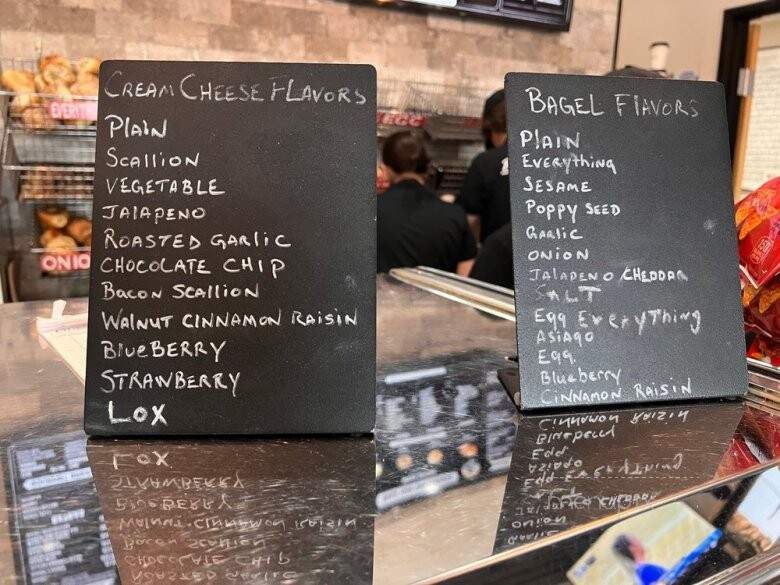 CREAM CHEESE FLAVORS
PLAIN
SCALLION
VEGETABLE
JALAPENO
ROASTED GARLIC
CHOCOLATE CHIP
BACON SCALLION
WALNUT CINNAMON RAISIN
BLUEBERRY
STRAWBERRY
LOX
BAGEL FLAVORS
PLAIN
EVERYTHING
SESAME
POPPY SEED
GARLIC
ONION
JALAPENO CHEDDAR
SALT
Egg EveryThing
ASIAGO
Egg
Blueberry
CINNAMON RAISIN
EVERYT
ONIO
EGG